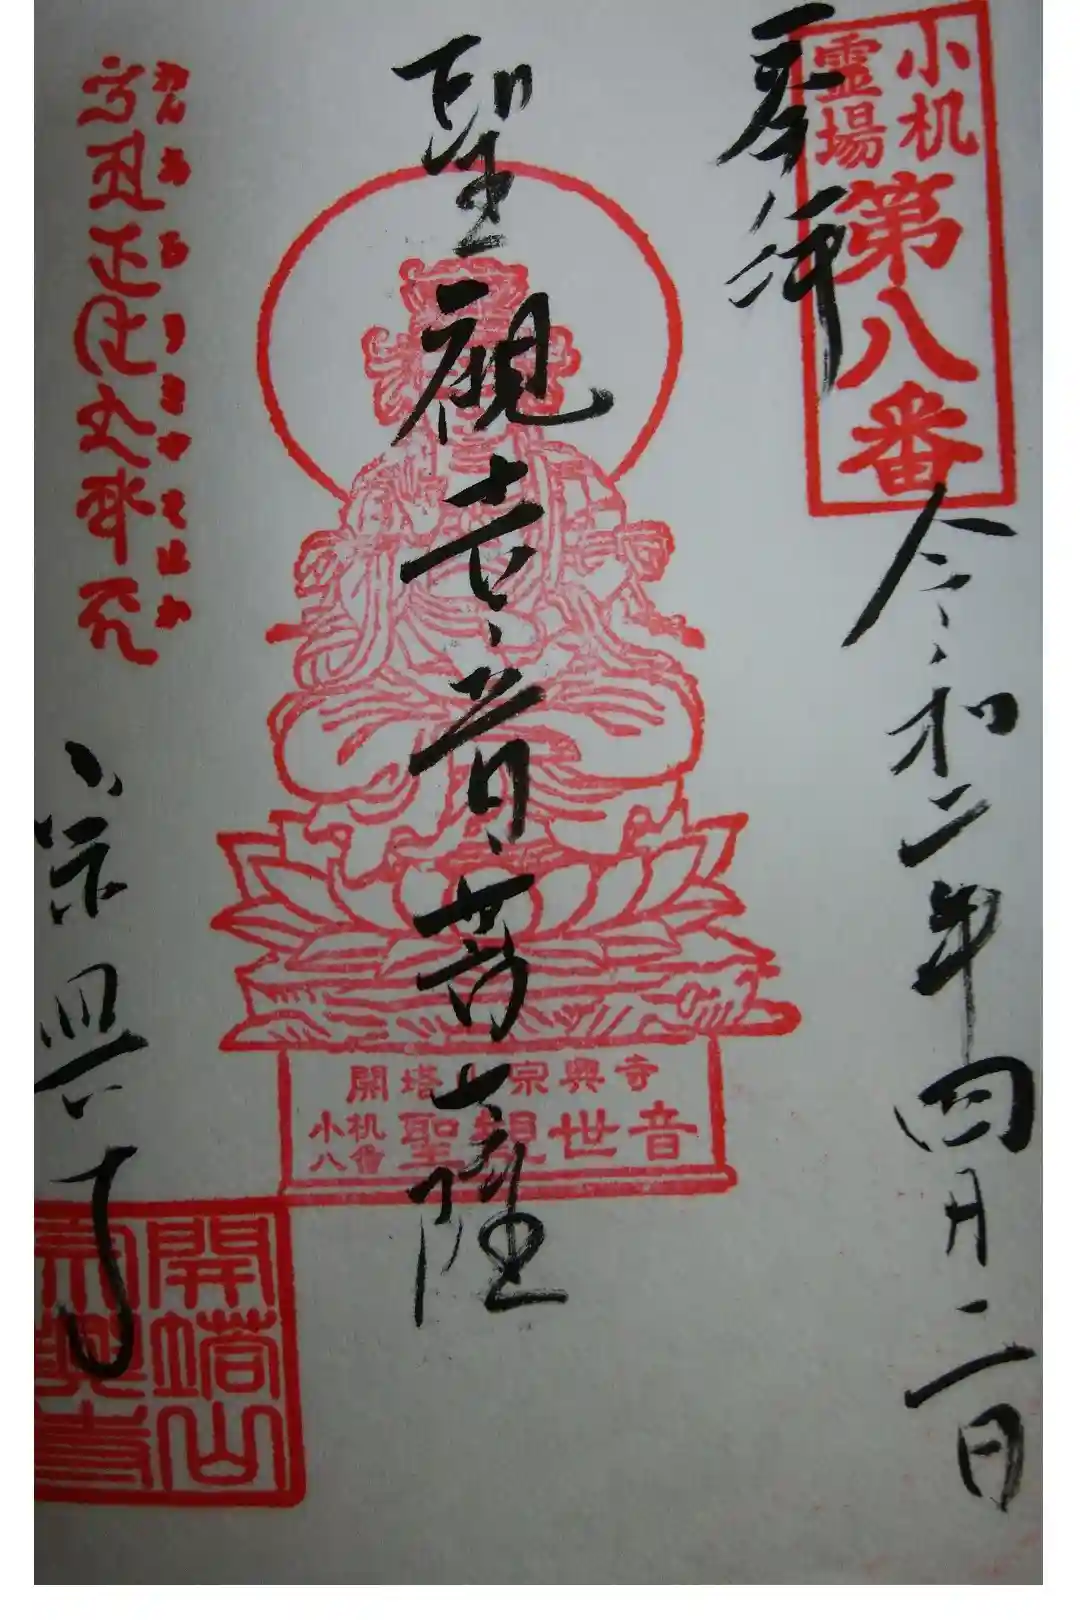 小机
霊場
第八番
奉拝
令和二年四月二日
聖観世音菩薩
開塔山宗興寺
小机
八番
聖観世音
宗興寺
開塔山
宗興寺